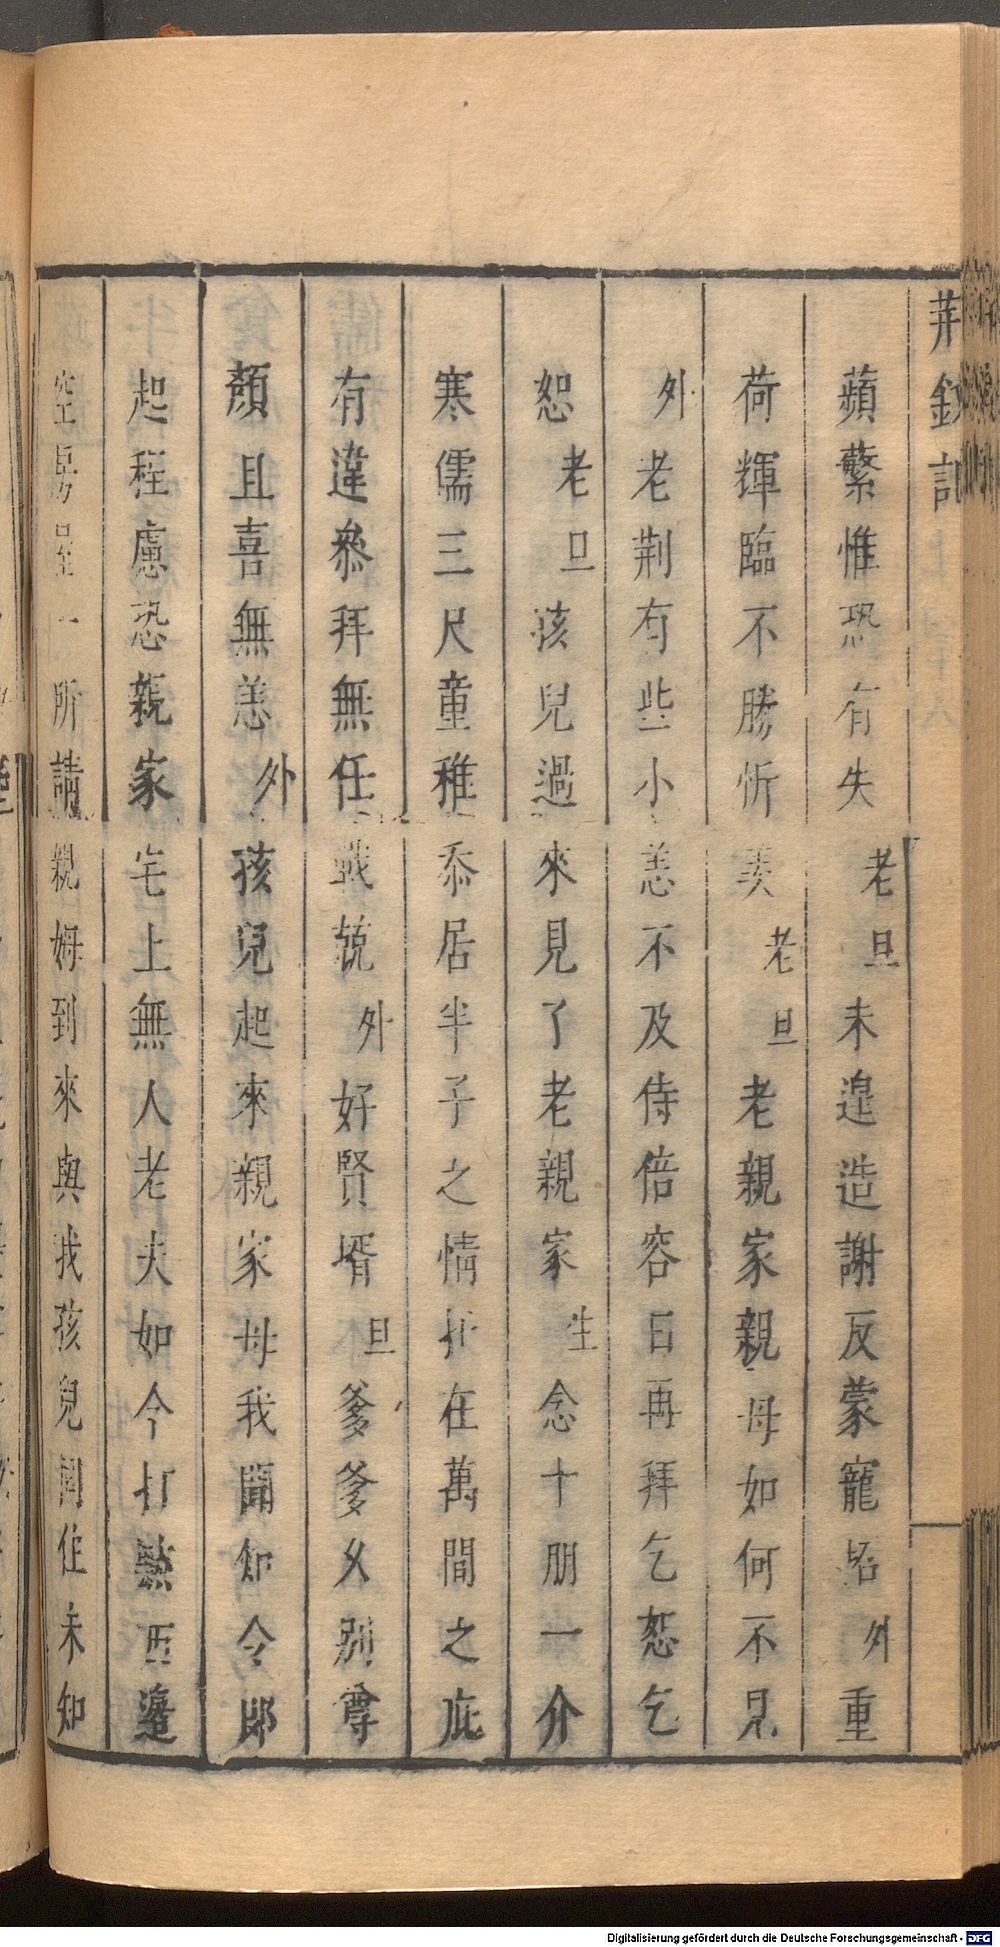 荆釵記
蘋蘩惟恐有失老旦未遑造謝反蒙寵招外重
荷輝臨不勝忻美老旦老親家親母如何不見
外老荆有些小恙不及侍倍容日再拜乞恕乞
恕老旦孩兒過來見了老親家生念十朋一介
寒儒三尺童稚忝居半子之情托在萬間之庇
有違參拜無任戰兢外好賢壻旦爹爹久別尊
顏且喜無恙外孩兒起來親家母我聞知令郎
起程慮恐親家宅上無人老夫如今打熬西邉
空房子一所請親姆到來與我孩兒同住未知
Digitalisierung gefördert durch die Deutsche Forschungsgemeinschaft - DFG